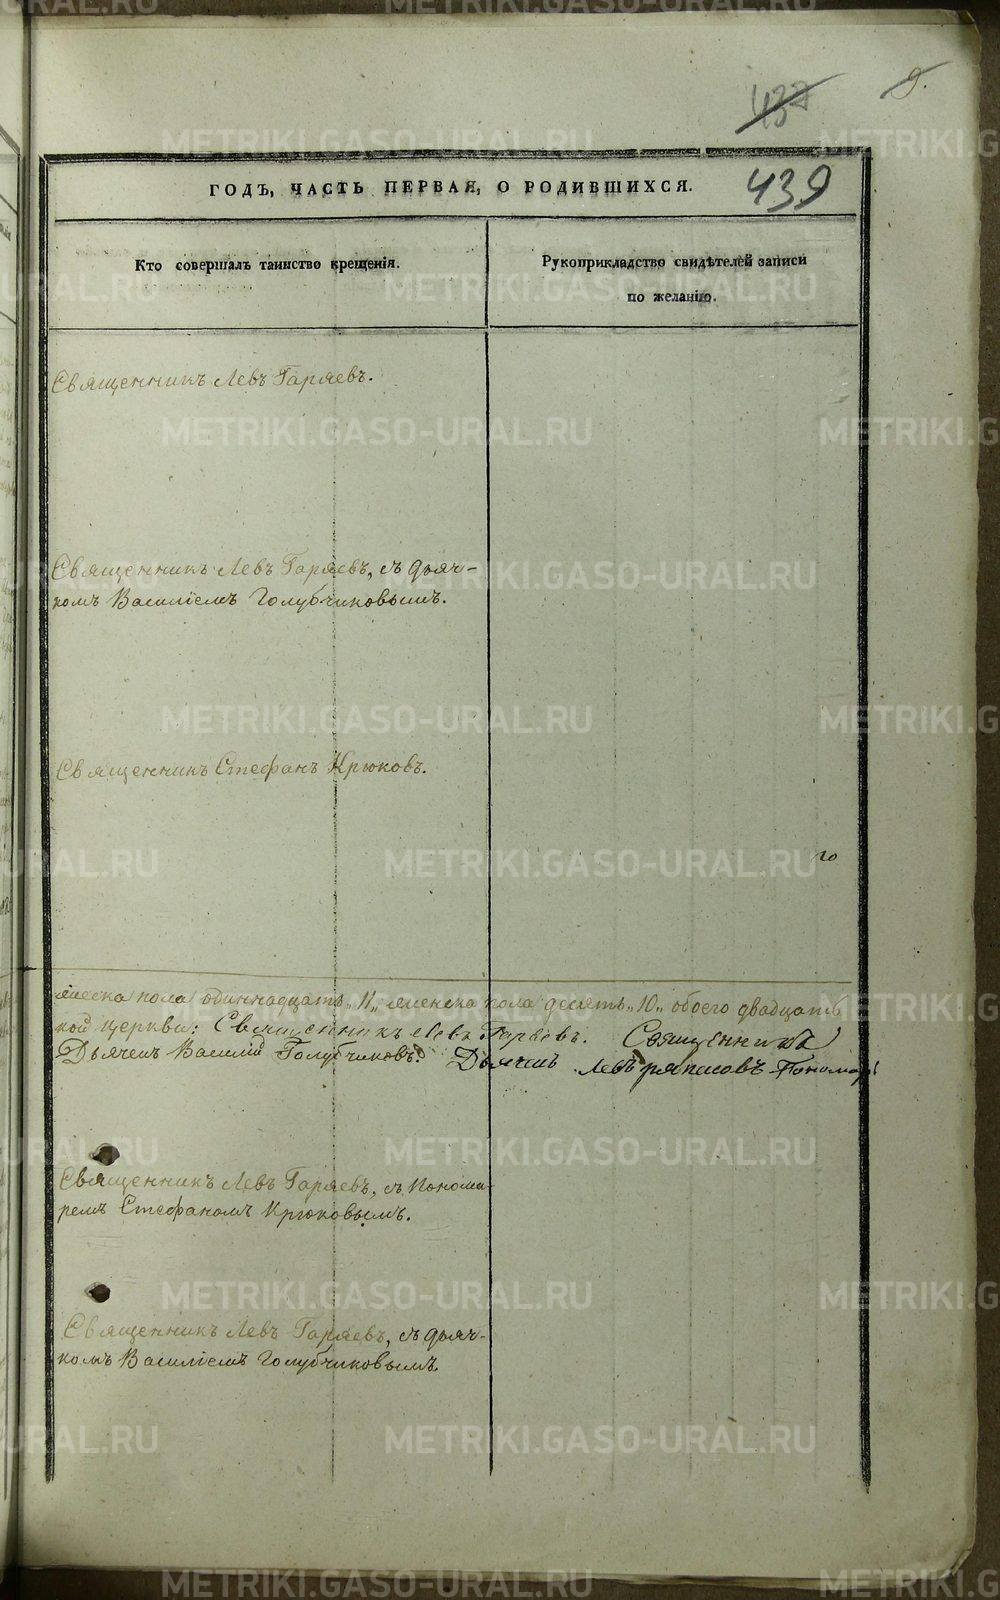 437 9.
ГОДЪ, ЧАСТЬ ПЕРВАЯ, О РОДИВШИХСЯ.
439
Кто совершалъ таинство крещенія.
Рукоприкладство свидѣтелей записи
по желанію.
Священникъ Левъ Гаряевъ.
Священникъ Левъ Гаряевъ, съ дьяч-
комъ Василіемъ Голубчиковымъ.
Священникъ Стефанъ Крюковъ.
го
мужеска пола одиннадцать „11„ женска пола десять „10„ обоего двадцать
кой церкви: Священникъ Левъ Гаряевъ. Священникъ
Дьячекъ Василій Голубчиковъ. Дьячекъ Левъ Пономарь
Священникъ Левъ Гаряевъ, съ понома-
ремъ Стефаномъ Крюковымъ.
Священникъ Левъ Гаряевъ, съ дьяч-
комъ Василіемъ Голубчиковымъ.
METRIKI.GASO-URAL.RU